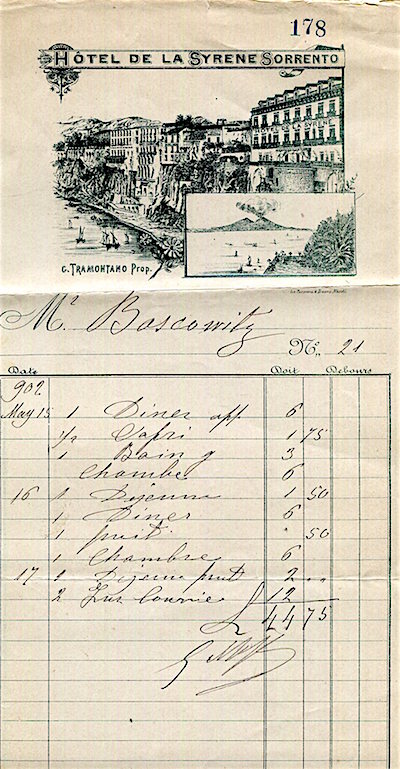 178
HÔTEL DE LA SYRENE SORRENTO
HOTEL DE LA SYRENE
G. TRAMONTANO Prop.
Mr Boscowitz
No. 21
Date Doit Debours
902
May 15 1 Diner app 6
1/2 Capri 1 75
1 Bain g 3
Chambe 6
16 1 Dejeune 1 50
1 Diner 6
1 fruit " 50
1 Chambre 6
17 1 Dejeune fruit 2 "
2 12
44 75